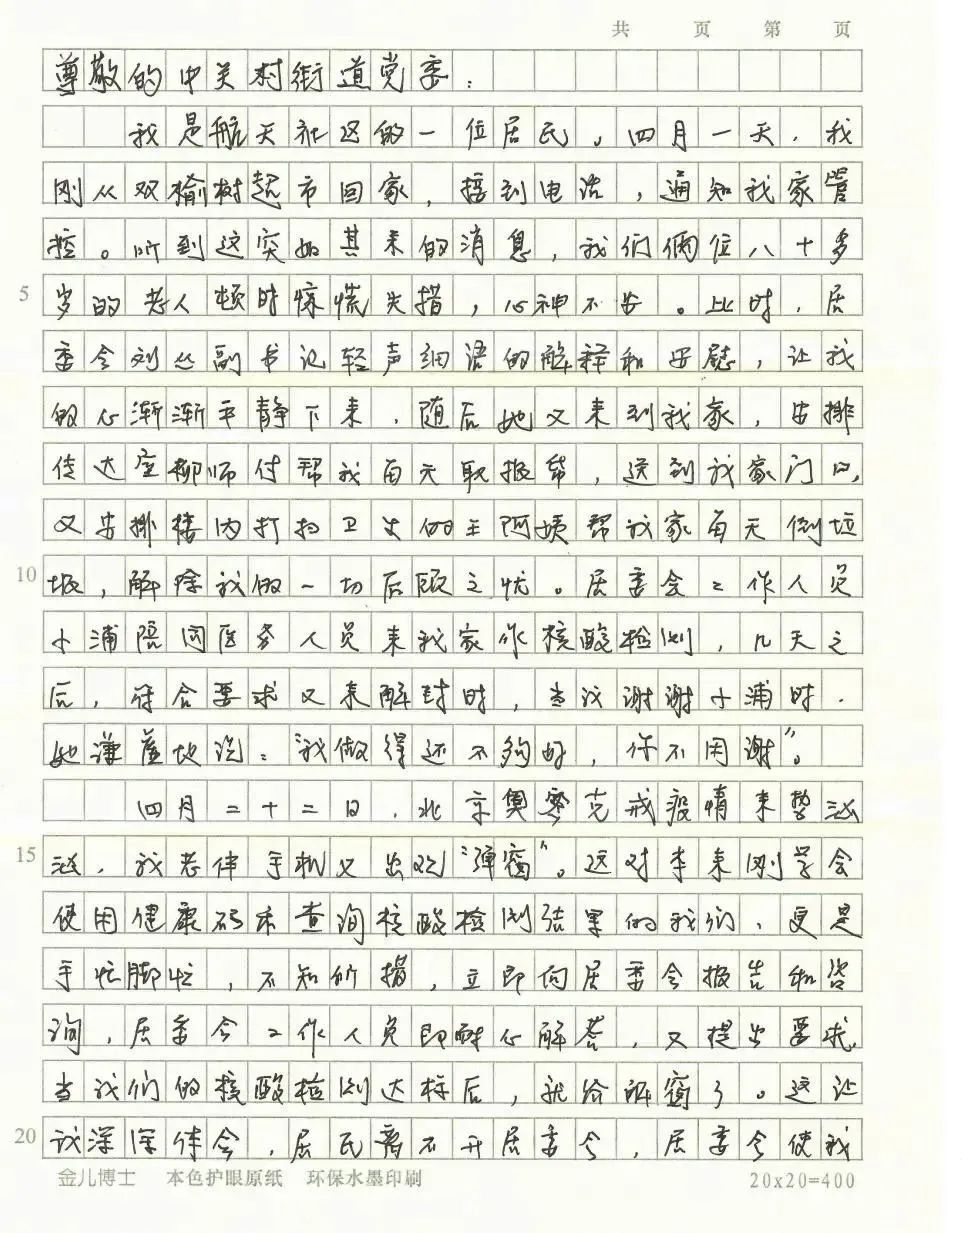 共 页 第 页
尊敬的中关村街道党委：
我是航天社区的一位居民。四月一天，我
刚从双榆树超市回家，接到电话，通知我家管
控。听到这突如其来的消息，我们俩位八十多
5 岁的老人顿时惊慌失措，心神不安。此时，居
委会刘丛副书记轻声细语的解释和安慰，让我
的心渐渐平静下来，随后她又来到我家，安排
传达室柳师付帮我每天取报纸，送到我家门口，
又安排楼内打扫卫生的王阿姨帮我家每天倒垃
10 圾，解除我的一切后顾之忧。居委会工作人员
小浦陪同医务人员来我家作核酸检测，几天之
后，符合要求又来解封时，当我谢谢小浦时，
她谦虚地说：“我做得还不够好，你不用谢”。
四月二十二日，北京奥密克戎疫情来势汹
15 汹，我老伴手机又出现“弹窗”。这对李来刚学会
使用健康码和查询核酸检测结果的我们，更是
手忙脚忙，不知所措，立即向居委会报告和咨
询，居委会工作人员即耐心解答，又提出要求，
当我们的核酸检测达标后，就给解窗了。这让
20 我深深体会，居民离不开居委会，居委会使我
金儿博士 本色护眼原纸 环保水墨印刷 20x20=400